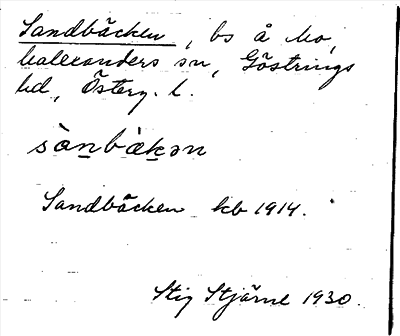 Sandbäcken, bs å Ho,
halexanders sn, Göstrings
hd, Österg. l.
sànbàkən
Sandbäcken kb 1914.
Stig Stjärne 1930.